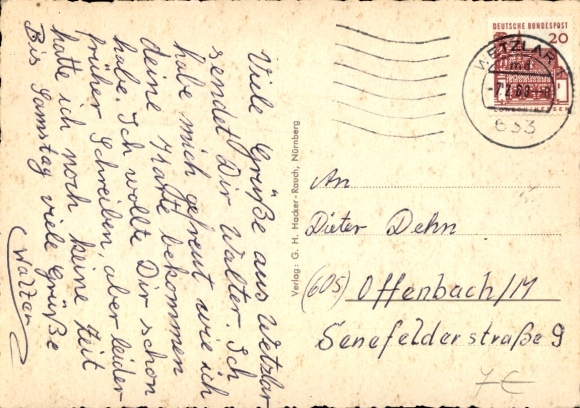 Viele Grüße aus Wetzlar
sendet Dir Walter. Ich
habe mich gefreut wie ich
deine Karte bekommen
habe. Ich wollte Dir schon
früher Schreiben, aber leider
hatte ich noch keine Zeit
Bis Samstag viele Grüße
Walter
Verlag: G. H. Hacker-Rauch, Nürnberg
DEUTSCHE BUNDESPOST
20
WETZLAR 1
633
An
Dieter Dehn
(605) Offenbach/M
Senefelderstraße 9
7€